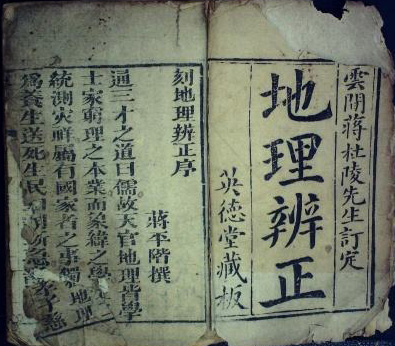 雲間蔣杜陵先生訂定
地理辨正
英德堂藏板
刻地理辨正序
蔣平階撰
通三才之道曰儒故天官地理皆學
士家窮理之本業而象緯之學
統測灾祥屬有國家者之事獨地理
爲養生送死生民日用所急孝子慈